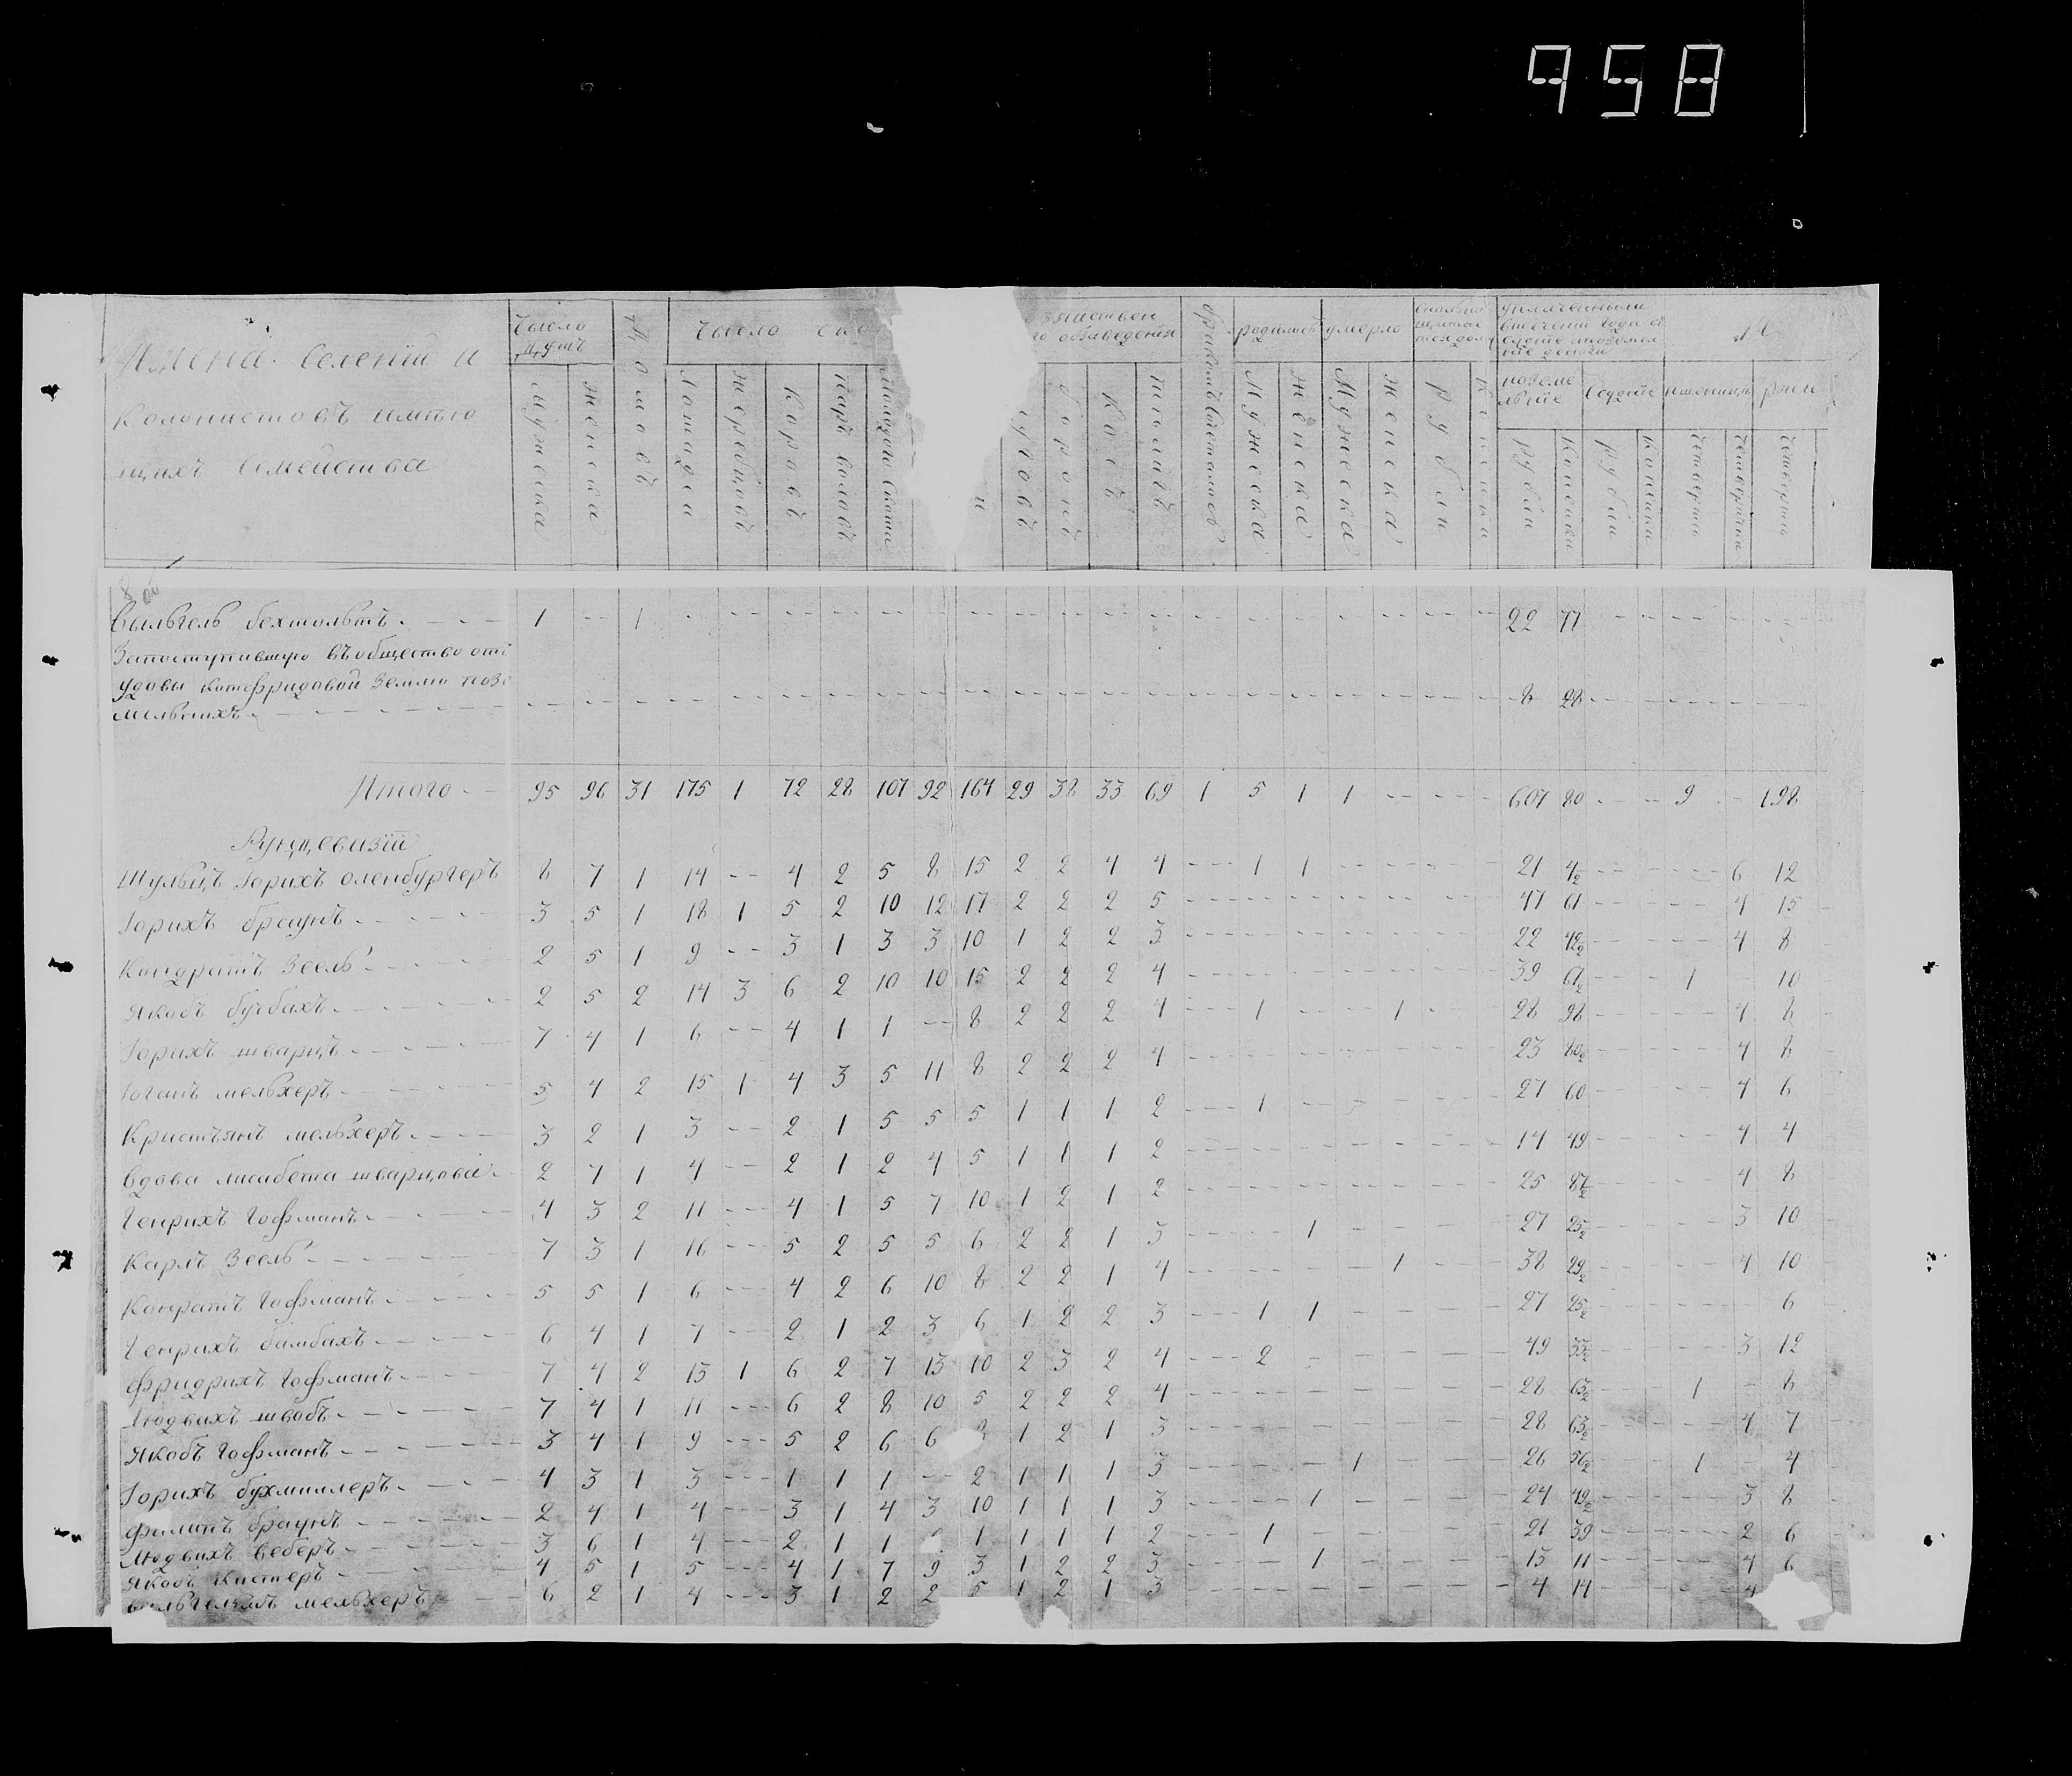 958
Имена Селений и
колонистовъ имѣю
щихъ Семейства
Число
душъ
мужеска
женска
Домовъ
Число ско
Лошадей
Жеребцовъ
Коровъ
паръ воловъ
молодого скота
зяйствен
го обзаведения
уговъ
боронъ
Косъ
родилось
Мужеска
женска
умерло
Мужеска
женска
рубли
копейки
уплаченными
поземе
льные
рубли
копейки
Ссудные
рубли
копейки
пшеницы
четверти
четверики
ржи
четверти
8 об
Вильгель бехтольтъ 1 -- 1 22 77
Запоступившую въобщество отъ
удовы котефридовой землю позе
мельнихъ 8 28
Итого 95 96 31 175 1 72 28 107 92 164 29 38 33 69 1 5 1 1 607 80 9 198
Рунцевизии
Шульцъ Іорихъ оленбургеръ 8 7 1 14 -- 4 2 5 8 15 2 2 4 4 1 1 21 4/2 6 12
Іорихъ браунъ 3 5 1 18 1 5 2 10 12 17 2 2 2 5 47 61 4 15
Кондратъ Зеель 2 5 1 9 -- 3 1 3 3 10 1 2 2 3 22 42/2 4 8
Якобъ бучбахъ 2 5 2 14 3 6 2 10 10 15 2 2 2 4 39 61/2 1 10
Іорихъ шварцъ 7 4 1 6 -- 4 1 1 -- 8 2 2 2 4 1 1 28 98 4 8
Іоганъ мельхеръ 5 4 2 15 1 4 3 5 11 8 2 2 2 4 23 80/2 4 8
Кристьянъ мельхеръ 3 2 1 3 -- 2 1 5 5 5 1 1 1 2 1 27 60 4 6
Вдова лисабета шварцова 2 4 1 4 -- 2 1 2 4 5 1 1 1 2 14 49 4 4
Генрихъ Гофманъ 4 3 2 11 -- 4 1 5 7 10 1 2 1 2 25 87/2 4 8
Карлъ Зеель 7 3 1 16 -- 5 2 5 5 6 2 2 1 3 1 27 25/2 3 10
Конратъ Гофманъ 5 5 1 6 -- 4 2 6 10 8 2 2 1 4 1 38 29/2 4 10
Генрихъ бамбахъ 6 4 1 7 -- 2 1 2 3 6 1 2 2 3 1 1 27 25/2 6
Фридрихъ Гофманъ 7 4 2 13 1 6 2 7 13 10 2 3 2 4 2 49 33/2 3 12
Людвихъ швабъ 7 4 1 11 -- 6 2 8 10 5 2 2 2 4 28 63/2 1 8
Якобъ Гофманъ 3 4 1 9 -- 5 2 6 6 1 2 1 3 28 63/2 4 7
Іорихъ бухмиллеръ 4 3 1 3 -- 1 1 1 -- 2 1 1 1 3 1 26 56/2 1 4
филипъ браунъ 2 4 1 4 -- 3 1 4 3 10 1 1 1 3 1 24 49/2 3 8
Людвихъ веберъ 3 6 1 4 -- 2 1 1 1 1 1 1 2 1 21 39 2 6
Якобъ кистнеръ 4 5 1 5 -- 4 1 7 9 3 1 2 2 3 1 13 11 4 6
вильгельмъ мельхеръ 6 2 1 4 -- 3 1 2 2 5 1 2 1 3 4 14 4